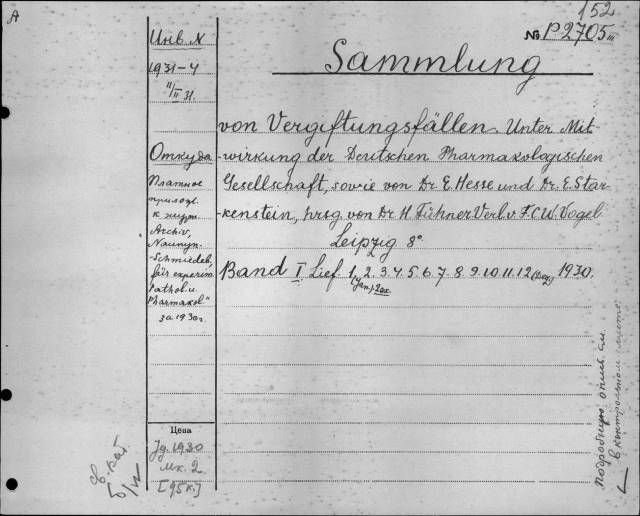 A
152
Инв. N
№ P2705 III
1931-4
11/II 31.
Sammlung
von Vergiftungsfällen. Unter Mit-
Откуда
-wirkung der Deutschen Pharmakologischen
Платное
Gesellschaft, sowie von Dr E. Hesse und Dr. E. Star-
прилож.
к журн.
-kenstein, hrsg. von Dr H. Fühner Verl. v. F.C.W. Vogel
„Archiv,
Leipzig 8°
Naunyn-
-Schmiedeb.
für experim.
Band I Lief. 1, 2. 3. 4. 5. 6. 7. 8. 9. 10. 11. 12 1930.
(Jan)
Pathol. u.
Pharmakol."
за 1930г.
Цена
Jg. 1930
мк. 2
[95к.]
св. кат.
б/н
подробную опись см.
в контрольном листе.